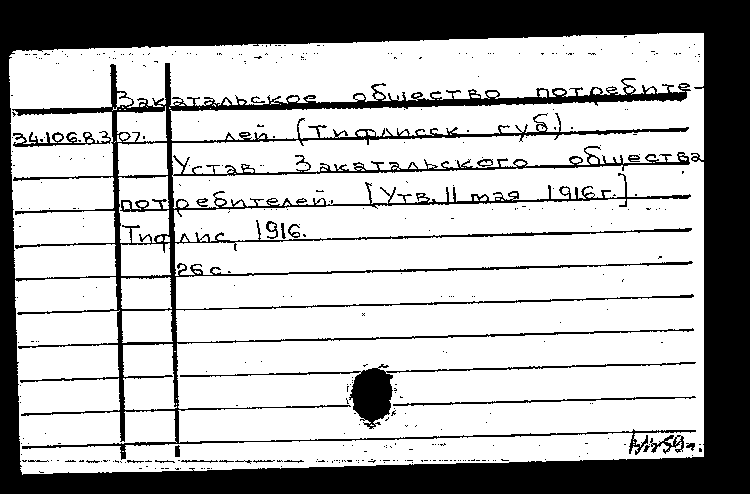 Закатальское общество потребите-
34.106.8.307. лей. (Тифлисск. губ.).
Устав Закатальского общества
потребителей. [Утв. 11 мая 1916г.].
Тифлис, 1916.
26 с.